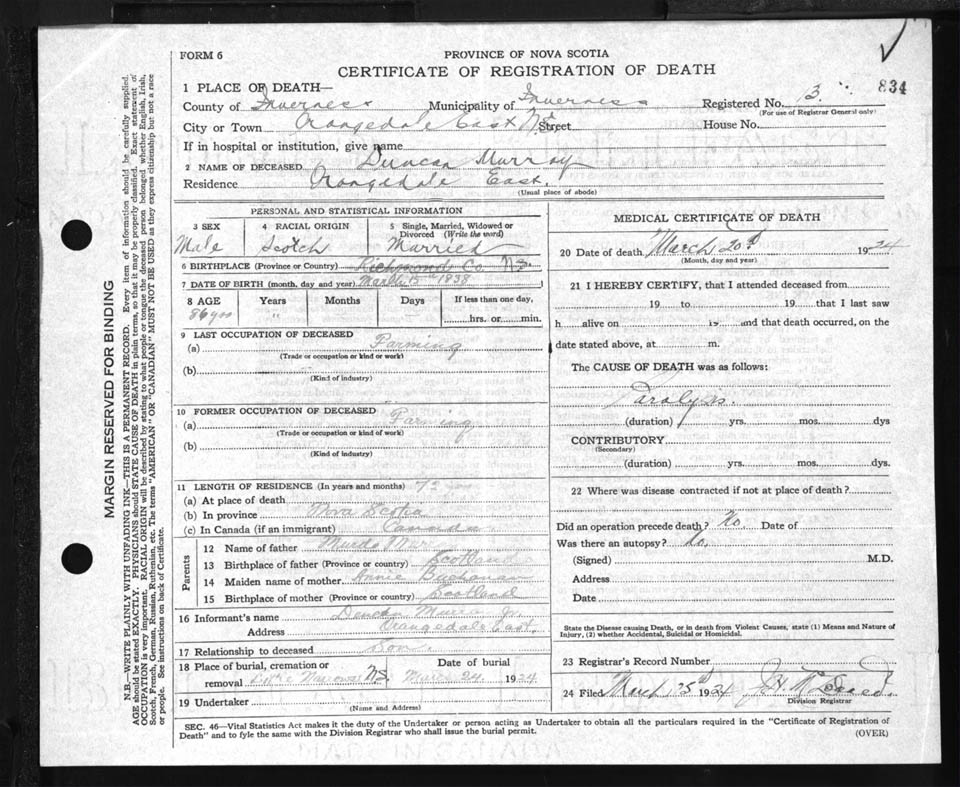 834
FORM 6
PROVINCE OF NOVA SCOTIA
CERTIFICATE OF REGISTRATION OF DEATH
1 PLACE OF DEATH—
County of Inverness Municipality of Inverness Registered No. 3
(For use of Registrar General only)
City or Town Orangedale East N.S. Street House No.
If in hospital or institution, give name
2 NAME OF DECEASED Duncan Murray
Residence Orangedale East.
(Usual place of abode)
PERSONAL AND STATISTICAL INFORMATION
3 SEX 4 RACIAL ORIGIN 5 Single, Married, Widowed or Divorced (Write the word)
Male Scotch Married
6 BIRTHPLACE (Province or Country) Richmond Co N.S.
7 DATE OF BIRTH (month, day and year) March 15th 1838
8 AGE Years Months Days If less than one day,
86 yrs " hrs. or min.
9 LAST OCCUPATION OF DECEASED
(a) Farming
(Trade or occupation or kind or work)
(b)
(Kind of industry)
10 FORMER OCCUPATION OF DECEASED
(a) Farming
(Trade or occupation or kind of work)
(b)
(Kind of industry)
11 LENGTH OF RESIDENCE (In years and months)
(a) At place of death
(b) In province Nova Scotia
(c) In Canada (if an immigrant) Canada
Parents
12 Name of father Murdo
13 Birthplace of father (Province or country) Scotland
14 Maiden name of mother Annie Buchanan
15 Birthplace of mother (Province or country) Scotland
16 Informant's name Duncan Murra Jr.
Address Orangedale East.
17 Relationship to deceased Son.
18 Place of burial, cremation or removal Little Narrows N.S. Date of burial March 24. 1924
19 Undertaker
(Name and Address)
MEDICAL CERTIFICATE OF DEATH
20 Date of death March 20th 1924
(Month, day and year)
21 I HEREBY CERTIFY, that I attended deceased from
19 to 19 that I last saw
h alive on 19 and that death occurred, on the
date stated above, at m.
The CAUSE OF DEATH was as follows:
Paralysis.
(duration) yrs. mos. dys
CONTRIBUTORY
(Secondary)
(duration) yrs. mos. dys.
22 Where was disease contracted if not at place of death?
Did an operation precede death? No Date of
Was there an autopsy? No.
(Signed) M.D.
Address
Date
State the Disease causing Death, or in death from Violent Causes, state (1) Means and Nature of
Injury, (2) whether Accidental, Suicidal or Homicidal.
23 Registrar's Record Number
24 Filed March 25th 1924 J.H.
Division Registrar
SEC. 46—Vital Statistics Act makes it the duty of the Undertaker or person acting as Undertaker to obtain all the particulars required in the "Certificate of Registration of
Death" and to fyle the same with the Division Registrar who shall issue the burial permit. (OVER)
MARGIN RESERVED FOR BINDING
N.B.—WRITE PLAINLY WITH UNFADING INK—THIS IS A PERMANENT RECORD. Every item of information should be carefully supplied.
AGE should be stated EXACTLY. PHYSICIANS should STATE CAUSE OF DEATH in plain terms, so that it may be properly classified. Exact statement of
OCCUPATION is very important. RACIAL ORIGIN will be described by stating to what people or tongue the deceased person belonged whether English, Irish,
Scotch, French, German, Russian, Ruthenian, etc. The terms "AMERICAN" OR "CANADIAN" MUST NOT BE USED as they express citizenship but not a race
or people. See instructions on back of Certificate.